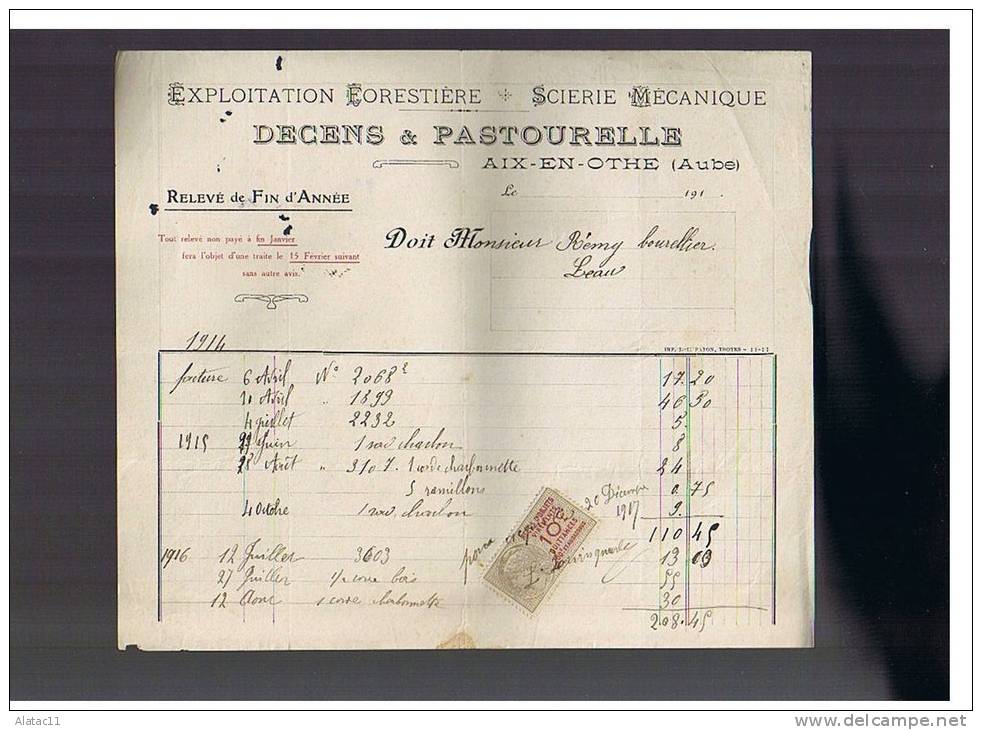 EXPLOITATION FORESTIÈRE + SCIERIE MÉCANIQUE
DECENS & PASTOURELLE
AIX-EN-OTHE (Aube)
RELEVÉ de FIN d'ANNÉE
Le 191
Tout relevé non payé à fin Janvier
fera l'objet d'une traite le 15 Février suivant
sans autre avis.
Doit Monsieur Rémy bourellier.
IMP. PATON, TROYES
1914
facture 6 Avril No 2068 17.20
Avril " 1899 46 30
4 juillet 2232 5.
1915 Juin 1 sac charbon 8
28 Août " 3107. 1 corde charbonnette 24
5 ramillons 0.75
4 Octobre 1 sac charbon 9.
110 45
1916 12 Juillet 3603 13
27 Juillet 1/2 corde bois 55
12 Aout 1 corde charbonnette 30
208.45
20 Décembre
1917
10c
QUITTANCES
Alatac11
www.delcampe.net